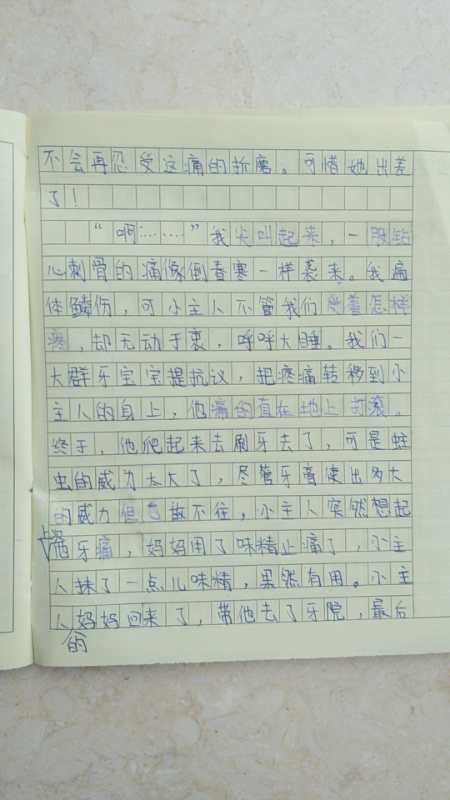 不会再忍受这痛的折磨。可惜她出差
了！
“啊……”我尖叫起来，一股钻
心刺骨的痛像倒春寒一样袭来。我遍
体鳞伤，可小主人不管我们受着怎样
疼，却无动于衷，呼呼大睡。我们一
大群牙宝宝提抗议，把疼痛转移到小
主人的身上，他痛的直在地上打滚。
终于，他爬起来去刷牙去了，可是蛀
虫的威力太大了，尽管牙膏使出多大
的威力但也敌不住，小主人突然想起
牙痛，妈妈用了味精止痛了，小主
人抹了一点儿味精，果然有用。小主
人妈妈回来了，带他去了牙院，最后
的